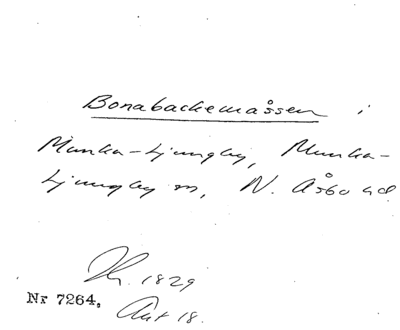 Bonabackemåssen i
Munka-Ljungby, Munka-
Ljungby sn, N. Åsbo hd
1829
Nr 7264. Akt 18.